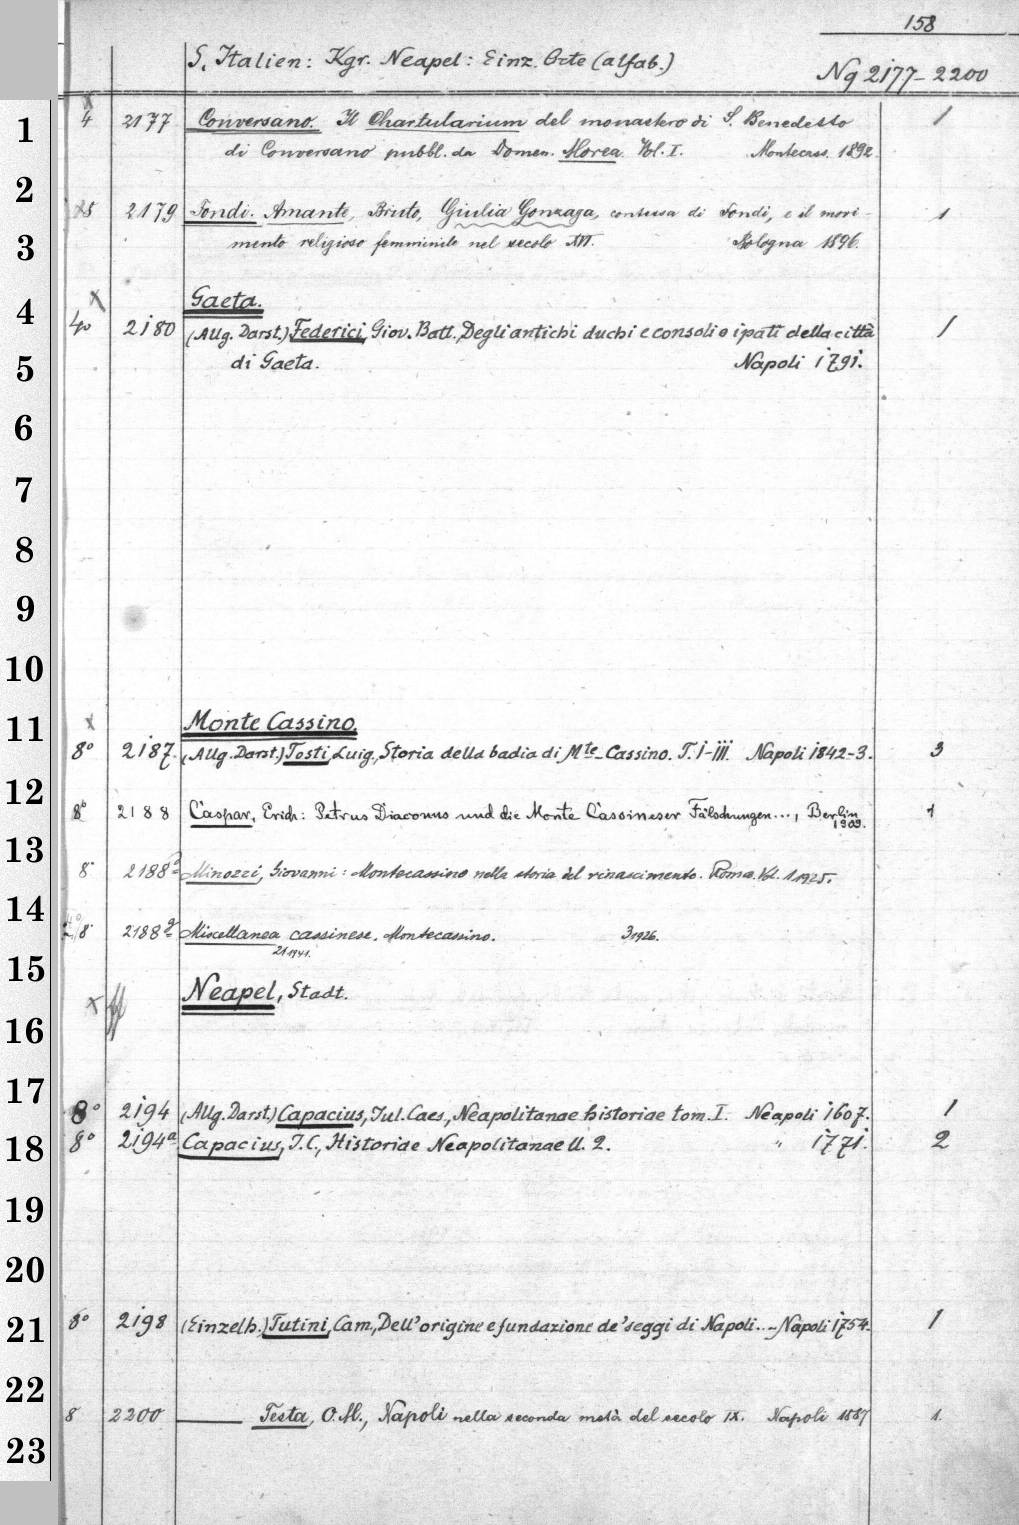 158
S. Italien: Kgr. Neapel: Einz. Orte (alfab.)
Ng 2177-2200
x
1
4 2177 Conversano. Il Chartularium del monastero di S. Benedetto 1
di Conversano pubbl. da Domen. Morea. Vol. I. Montecass. 1892.
2
2179 Fondi. Amante, Bruto, Giulia Gonzaga, contessa di Fondi, e il movi- 1
3
mento religioso femminile nel secolo XVI. Bologna 1896.
Gaeta.
x
4
4° 2180 (Allg. Darst.) Federici, Giov. Batt. Degli antichi duchi e consoli o ipati della città 1
5
di Gaeta. Napoli 1791.
6
7
8
9
10
11
x Monte Cassino.
8° 2187. (Allg. Darst.) Tosti, Luig., Storia della badia di Mte-Cassino. T. I-III. Napoli 1842-3. 3
12
8° 2188 Caspar, Erich: Petrus Diaconus und die Monte Cassineser Fälschungen..., Berlin 1
1909.
13
8° 2188 Minozzi, Giovanni: Montecassino nella storia del rinascimento. Roma. Vol. 1 1925.
14
8° 2188 Miscellanea cassinese. Montecassino. 3 1926.
21 1941.
15
x Neapel, Stadt.
16
17
8° 2194 (Allg. Darst.) Capacius, Jul. Caes., Neapolitanae historiae tom. I. Neapoli 1607. 1
18
8° 2194a Capacius, J. C., Historiae Neapolitanae ll. 2. " 1771. 2
19
20
21
8° 2198 (Einzelh.) Tutini, Cam., Dell'origine e fundazione de'seggi di Napoli..- Napoli 1754. 1
22
8 2200 —— Testa, O. M., Napoli nella seconda metà del secolo IX. Napoli 1887 1.
23